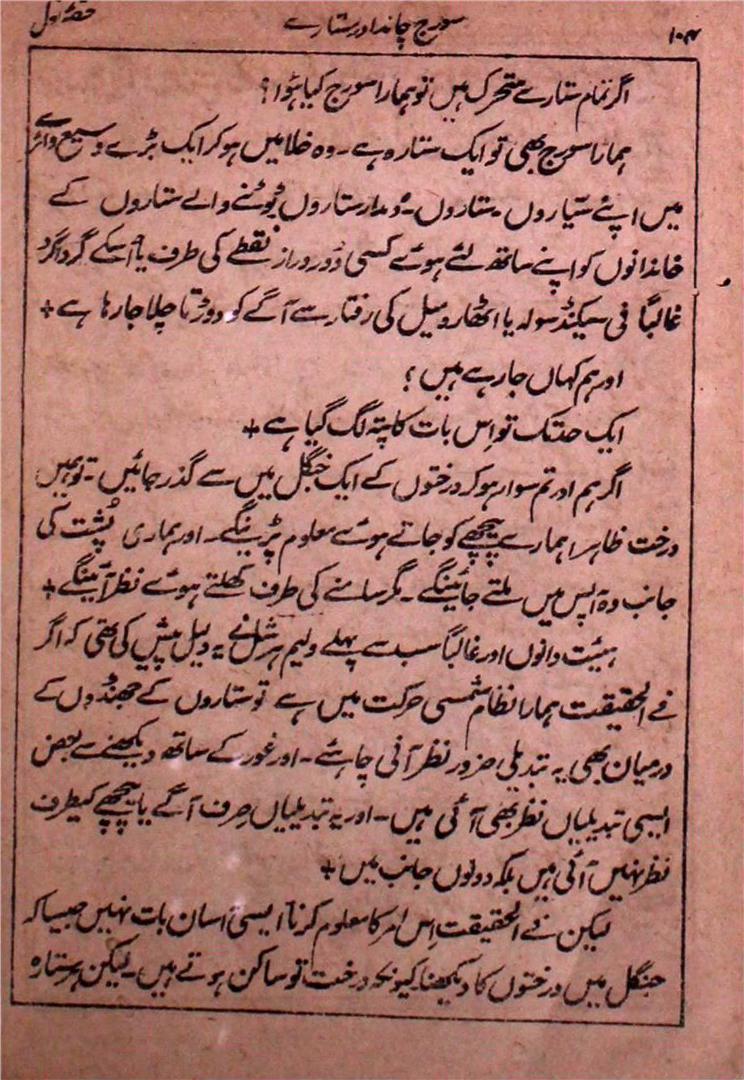 ۱۰۴ سورج چاند اور ستارے حصّۂ اول
اگر تمام ستارے متحرک ہیں تو ہمارا سورج کیا ہؤا؟
ہمارا سورج بھی تو ایک ستارہ ہے۔ وہ خلا میں ہو کر ایک بڑے وسیع دائرے
میں اپنے سیّاروں۔ ستاروں۔ دُمدار ستاروں ٹوٹنے والے ستاروں کے
خاندانوں کو اپنے ساتھ لئے ہوئے کسی دُور دراز نقطے کی طرف یا اُسکے گرداگرد
غالباً فی سیکنڈ سولہ یا اٹھارہ میل کی رفتار سے آگے کو دوڑتا چلا جا رہا ہے +
اور ہم کہاں جا رہے ہیں؟
ایک حد تک تو اِس بات کا پتہ لگ گیا ہے +
اگر ہم اور تم سوار ہو کر درختوں کے ایک جنگل میں سے گذر جائیں۔ تو ہمیں
درخت ظاہرا ہمارے پیچھے کو جاتے ہوئے معلوم پڑینگے۔ اور ہماری پُشت کی
جانب وہ آپس میں ملتے جائینگے۔ مگر سامنے کی طرف کھلتے ہوئے نظر آئینگے +
ہیئت دانوں اور غالباً سب سے پہلے ولیم ہرشل نے یہ دلیل پیش کی تھی کہ اگر
فے الحقیقت ہمارا نظام شمسی حرکت میں ہے تو ستاروں کے جھنڈوں کے
درمیان بھی یہ تبدیلی ضرور نظر آنی چاہئے۔ اور غور کے ساتھ دیکھنے سے بعض
ایسی تبدیلیاں نظر بھی آئی ہیں۔ اور یہ تبدیلیاں صِرف آگے یا پیچھے کیطرف
نظر نہیں آئی ہیں بلکہ دونوں جانب میں +
لیکن فے الحقیقت اِس امر کا معلوم کرنا ایسی آسان بات نہیں جیسا کہ
جنگل میں درختوں کا دیکھنا کیونکہ درخت تو ساکن ہوتے ہیں۔ لیکن ہر ستارہ